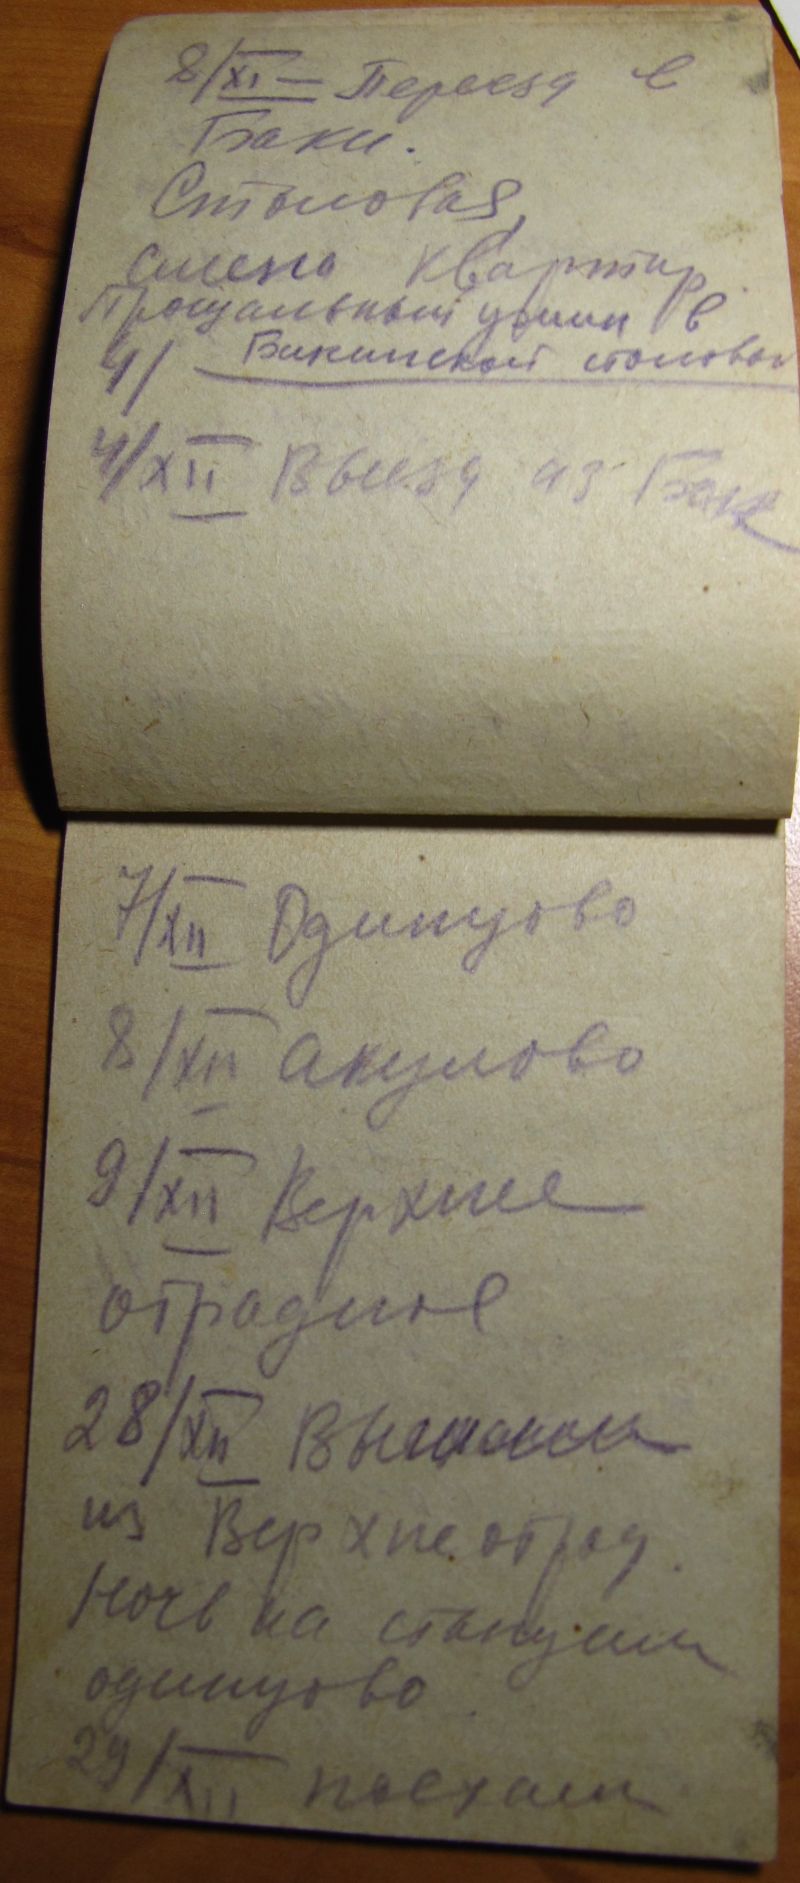 8/XI — Переезд в
Баки.
Столовая,
смена квартир.
Прощальный ужин в
4/ Бакинской столовой
4/XII Выезд из Бак
7/XII Одинцово
8/XII Акулово
9/XII Верхнее
отрадное
28/XII
из Верхнеотрад.
Ночь на станции
одинцово.
29/XII поехали